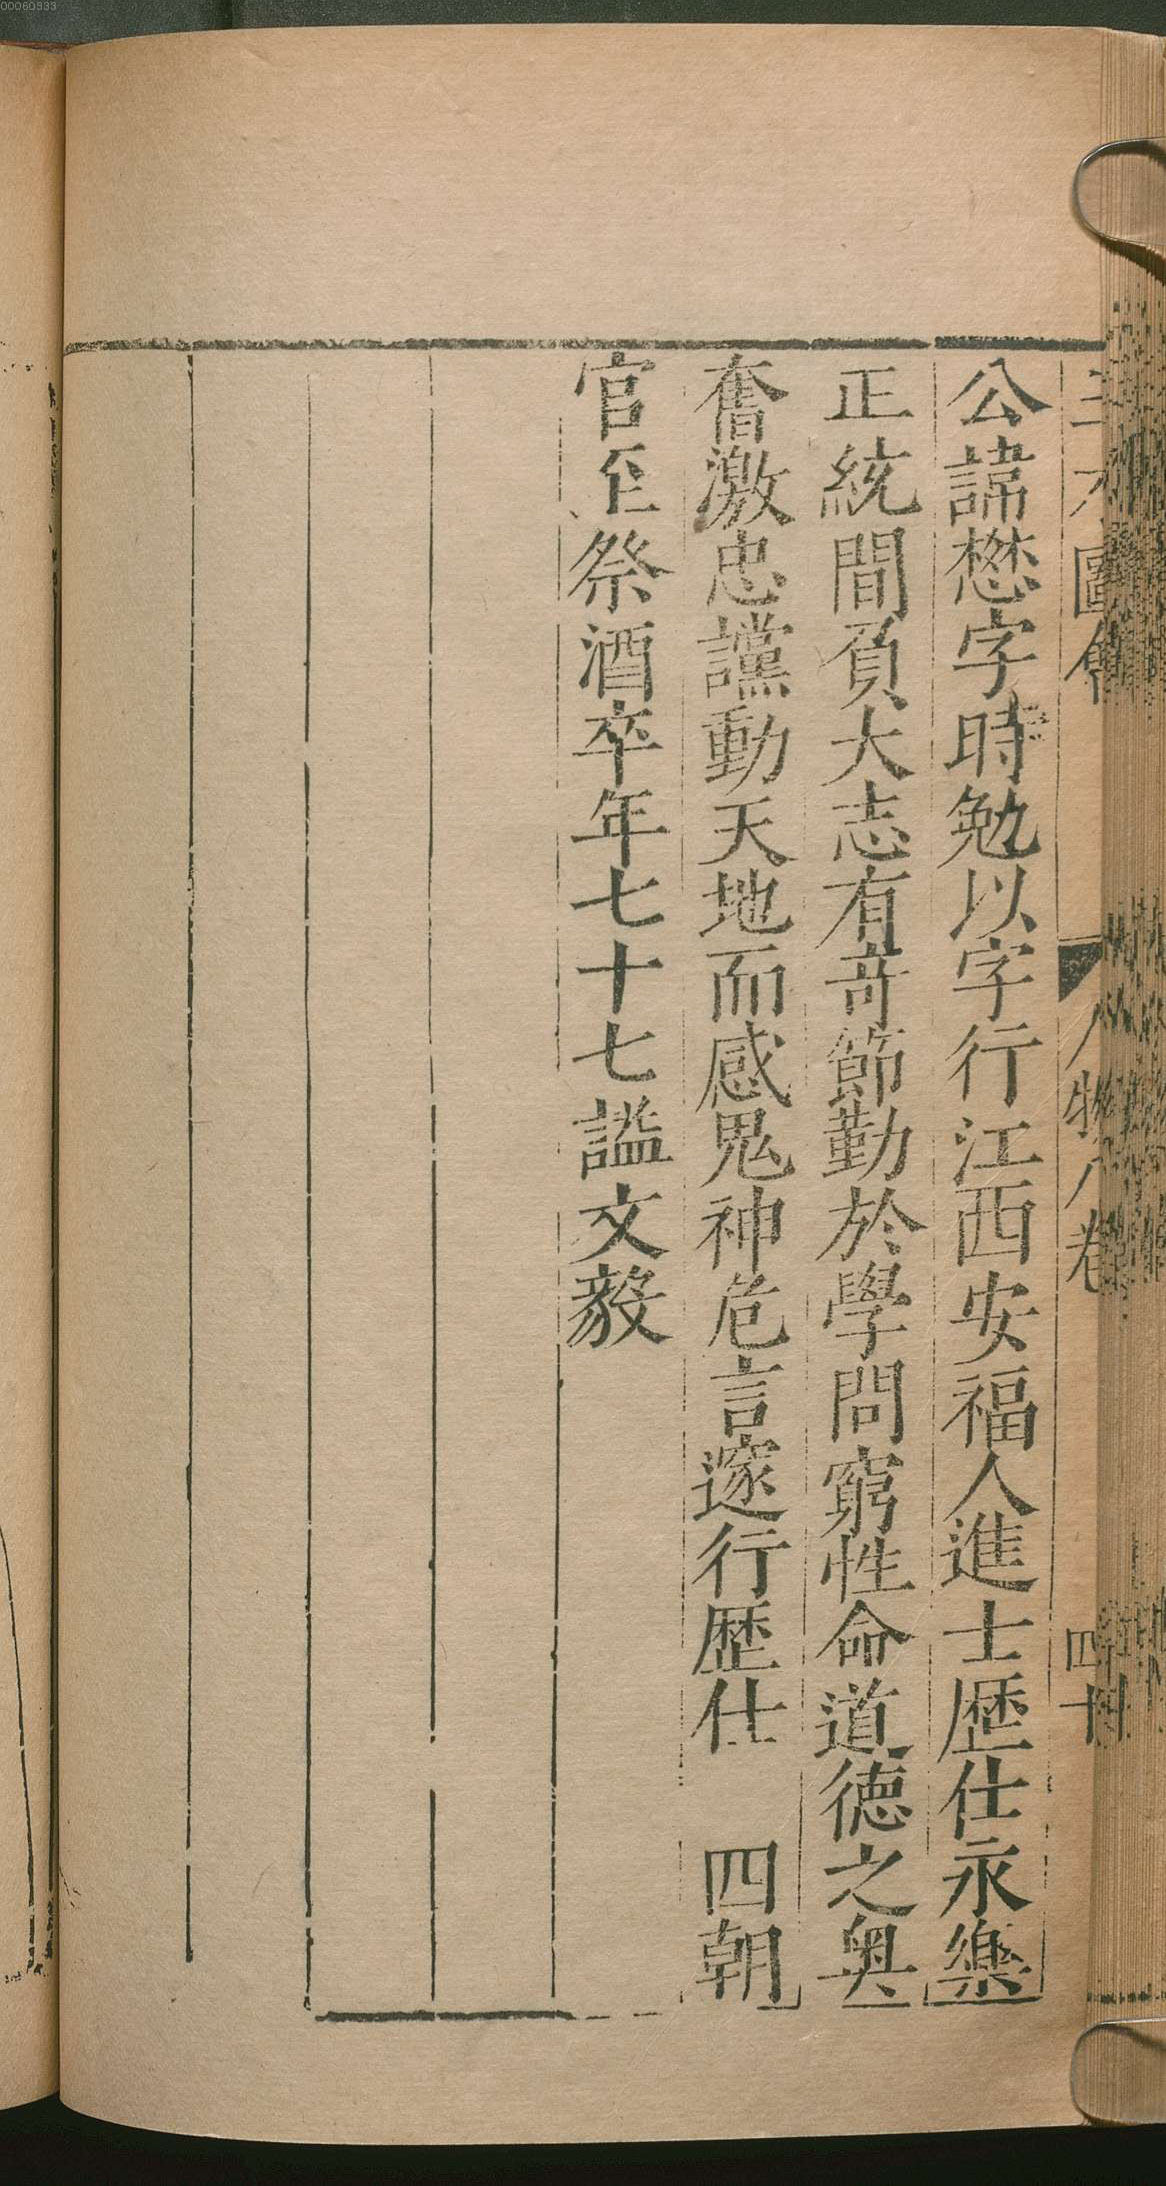 00060333
三才圖會 人物八卷 四十
公諱懋字時勉以字行江西安福人進士歷仕永樂
正統間負大志有奇節勤於學問窮性命道德之奥
奮激忠讜動天地而感鬼神危言邃行歷仕　四朝
官至祭酒卒年七十七謚文毅